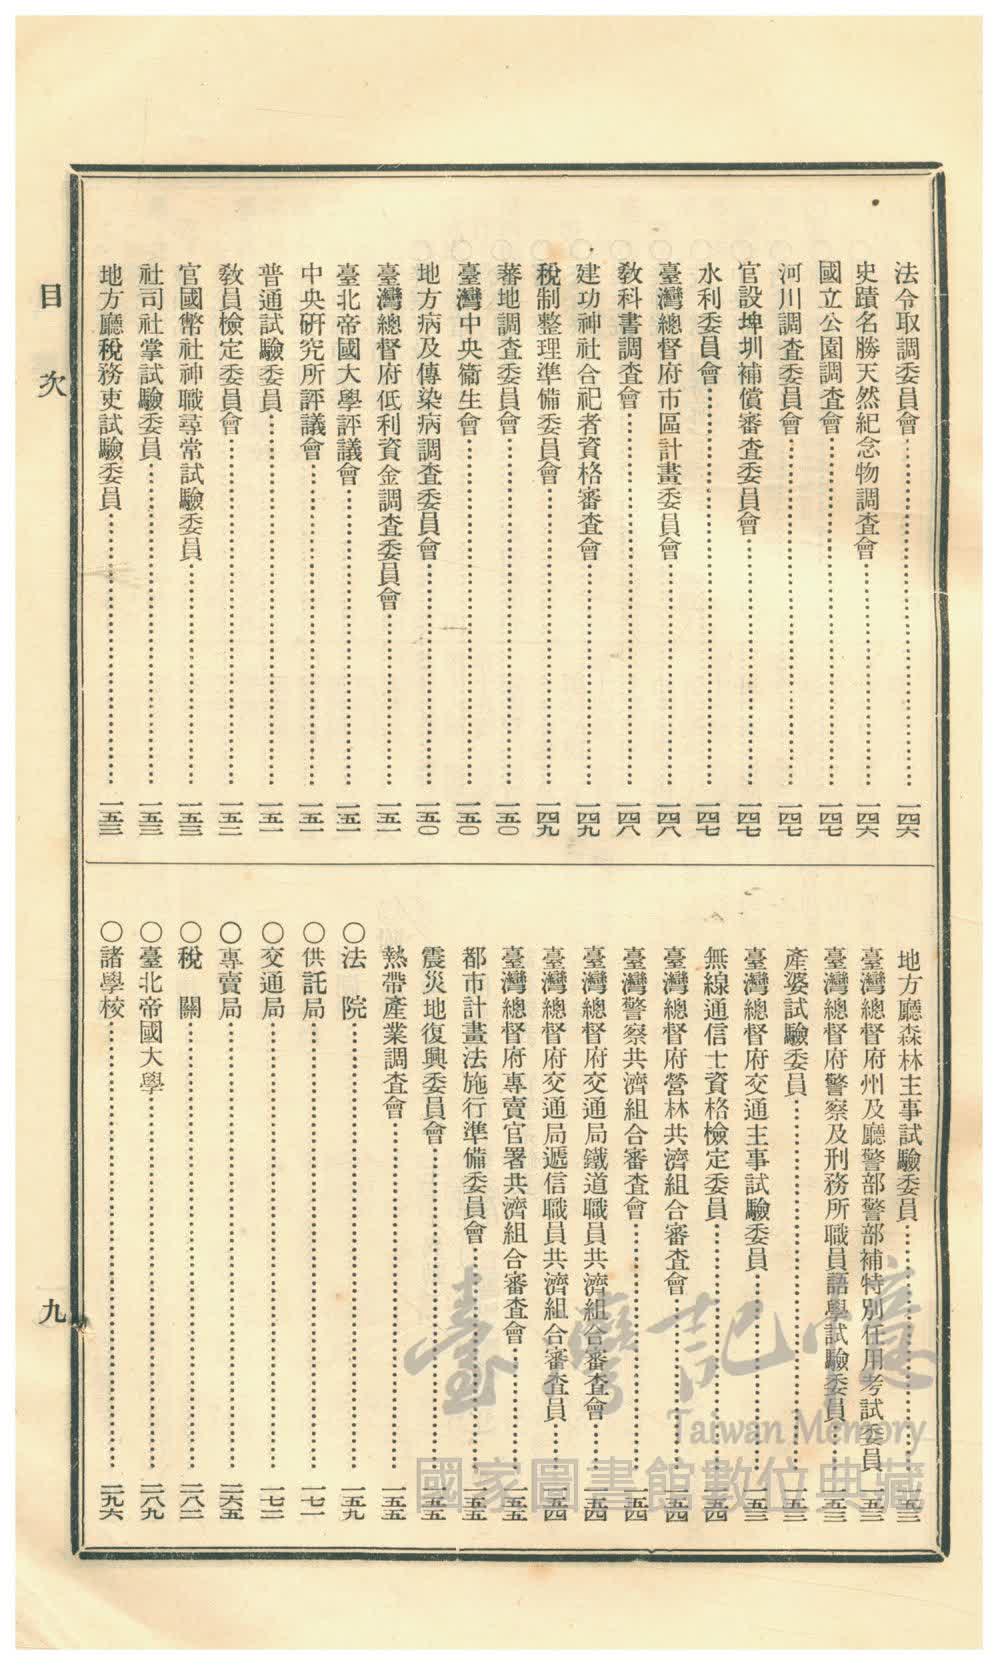 法令取調委員會……一四六
史蹟名勝天然紀念物調査會……一四六
國立公園調査會……一四七
河川調査委員會……一四七
官設埤圳補償審査委員會……一四七
水利委員會……一四七
臺灣總督府市區計畫委員會……一四八
敎科書調査會……一四八
建功神社合祀者資格審査會……一四九
稅制整理準備委員會……一四九
蕃地調査委員會……一五〇
臺灣中央衞生會……一五〇
地方病及傳染病調査委員會……一五〇
臺灣總督府低利資金調査委員會……一五一
臺北帝國大學評議會……一五一
中央硏究所評議會……一五一
普通試驗委員……一五一
敎員檢定委員會……一五二
官國幣社神職尋常試驗委員……一五三
社司社掌試驗委員……一五三
地方廳稅務吏試驗委員……一五三
地方廳森林主事試驗委員……一五三
臺灣總督府州及廳警部警部補特別任用考試委員……一五三
臺灣總督府警察及刑務所職員語學試驗委員……一五三
產婆試驗委員……一五三
臺灣總督府交通主事試驗委員……一五三
無線通信士資格檢定委員……一五四
臺灣總督府營林共濟組合審査會……一五四
臺灣警察共濟組合審査會……一五四
臺灣總督府交通局鐵道職員共濟組合審査會……一五四
臺灣總督府交通局遞信職員共濟組合審査員……一五四
臺灣總督府專賣官署共濟組合審査會……一五五
都市計畫法施行準備委員會……一五五
震災地復興委員會……一五五
熱帶產業調査會……一五五
〇法　院……一五九
〇供託局……一七一
〇交通局……一七二
〇專賣局……二六五
〇稅　關……二八二
〇臺北帝國大學……二八九
〇諸學校……二九六
目　次
九
臺灣記憶
Taiwan Memory
國家圖書館數位典藏